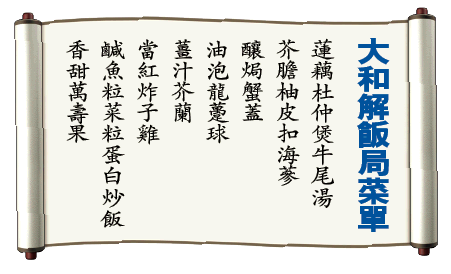 大和解飯局菜單
蓮藕杜仲煲牛尾湯
芥膽柚皮扣海蔘
釀焗蟹蓋
油泡龍躉球
薑汁芥蘭
當紅炸子雞
鹹魚粒菜粒蛋白炒飯
香甜萬壽果